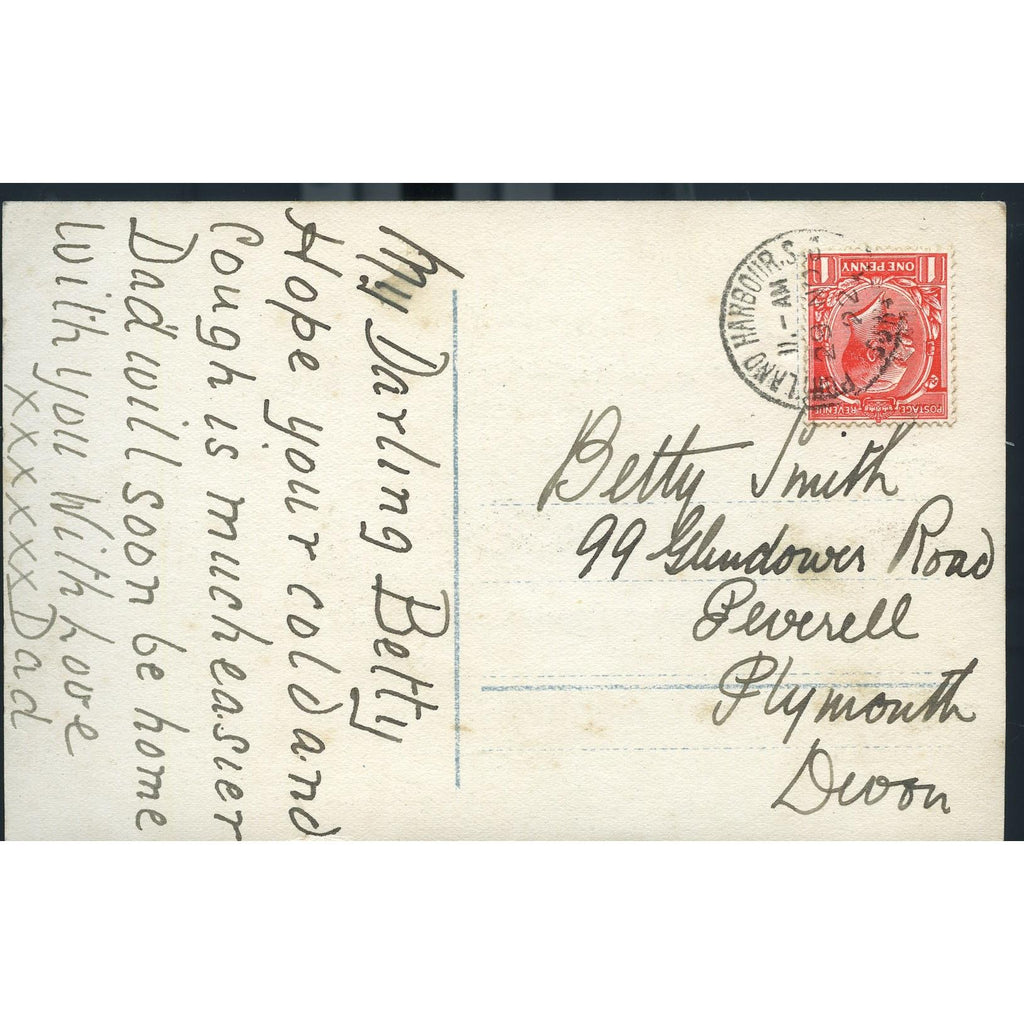 My Darling Betty
Hope your cold and
Cough is much easier
Dad will soon be home
with you With Love
xxxxxx Dad
PORTLAND HARBOUR.S.O
11.-AM
ONE PENNY
1 1
POSTAGE REVENUE
Betty Smith
99 Glendower Road
Peverell
Plymouth
Devon